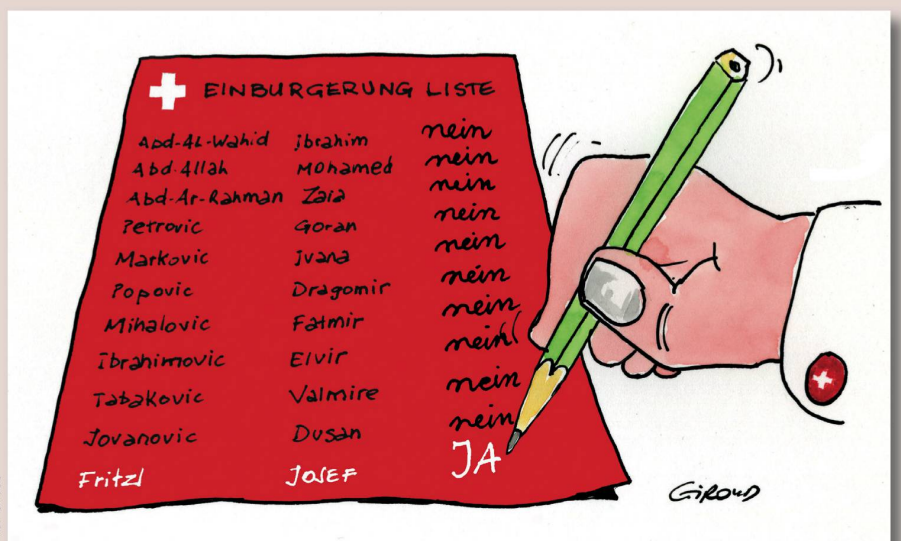 EINBURGERUNG LISTE
Abd-AL-Wahid ibrahim nein
Abd-Allah Mohamed nein
Abd-Ar-Rahman Zaia nein
Petrovic Goran nein
Markovic ivana nein
Popovic Dragomir nein
Mihalovic Fatmir nein
ibrahimovic Elvir nein
Tabakovic Valmire nein
Jovanovic Dusan nein
Fritzl JOSEF JA
GIROUD